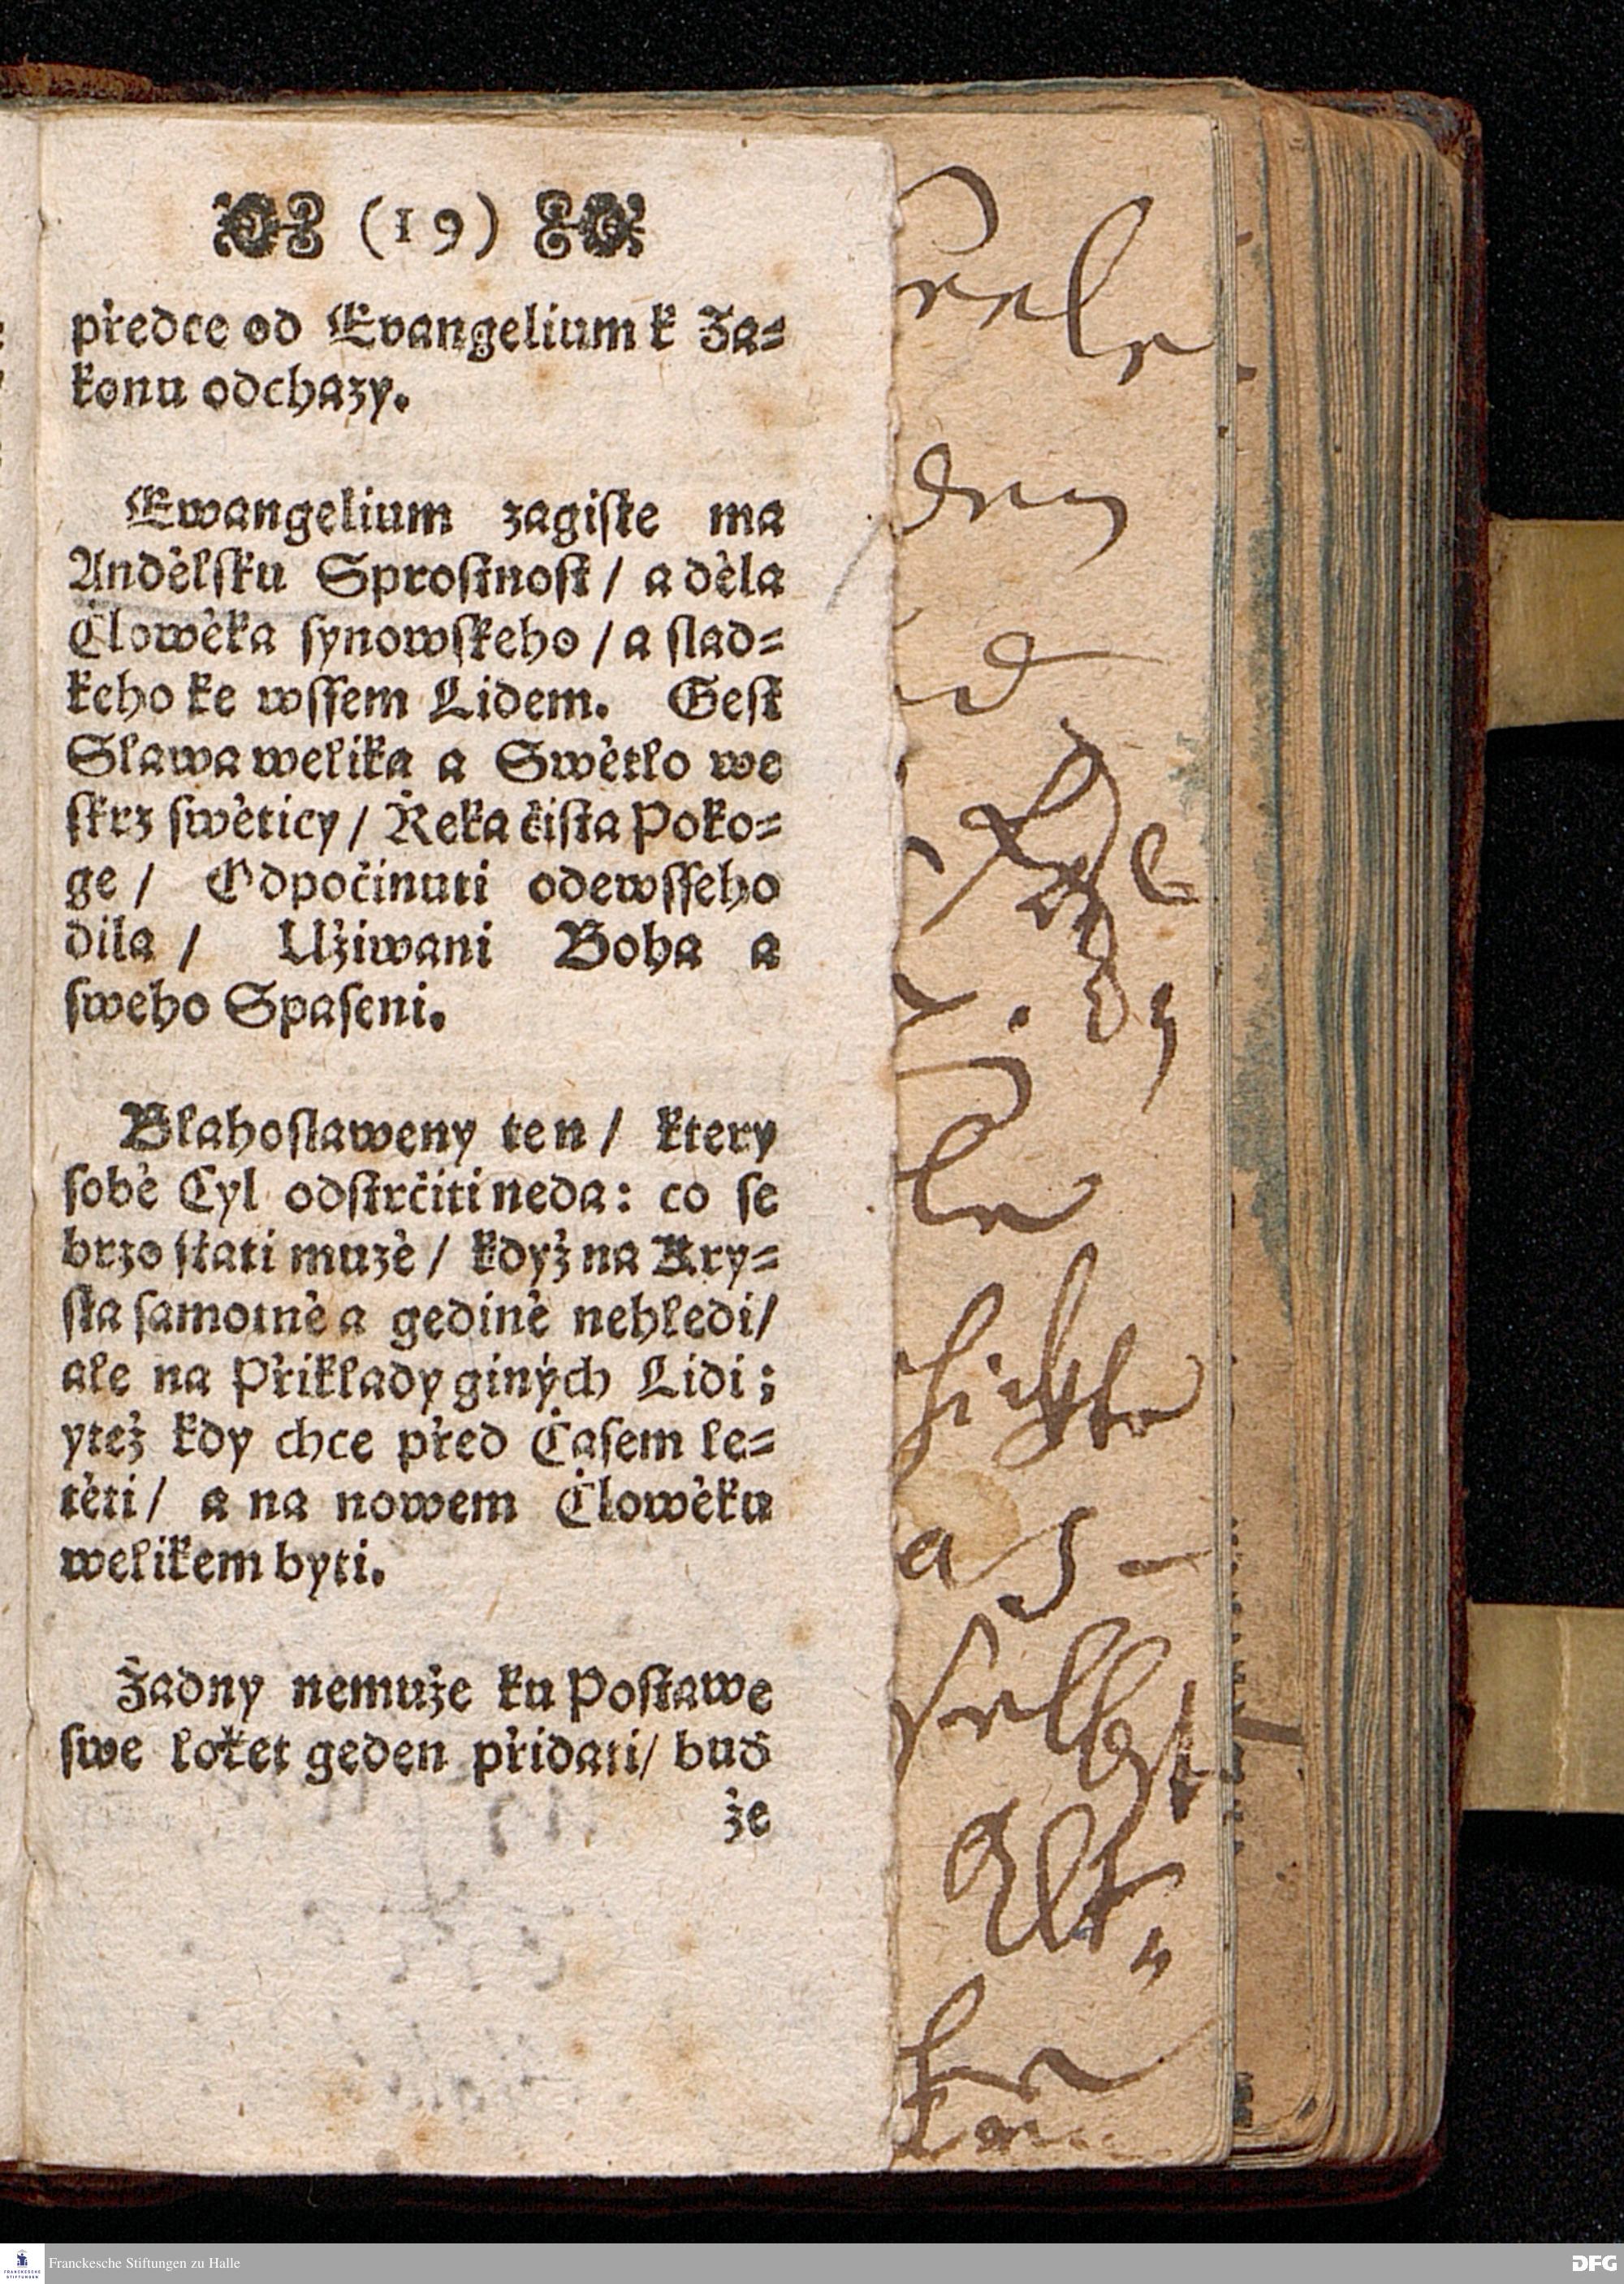 (19)
předce od Evangelium k Za=
konu odchazy.
Ewangelium zagiste ma
Andělsku Sprostnost / a děla
Člowěka synowskeho / a slad=
keho ke wssem Lidem. Gest
Slawa welika a Swětlo we
skrz swěticy / Řeka čista Poko=
ge / Odpočinuti odewsseho
dila / Užiwani Boha a
sweho Spaseni.
Blahoslaweny ten / ktery
sobě Cyl odstrčiti neda: co se
brzo stati muzě / když na Kry=
sta samotně a gedině nehledi /
ale na Přiklady giných Lidi;
ytež kdy chce před Časem le=
těti / a na nowem Člowěku
welikem byti.
Žadny nemuže ku Postawe
swe loket geden přidati / bud
že
den
selbst
Alt
Franckesche Stiftungen zu Halle
DFG